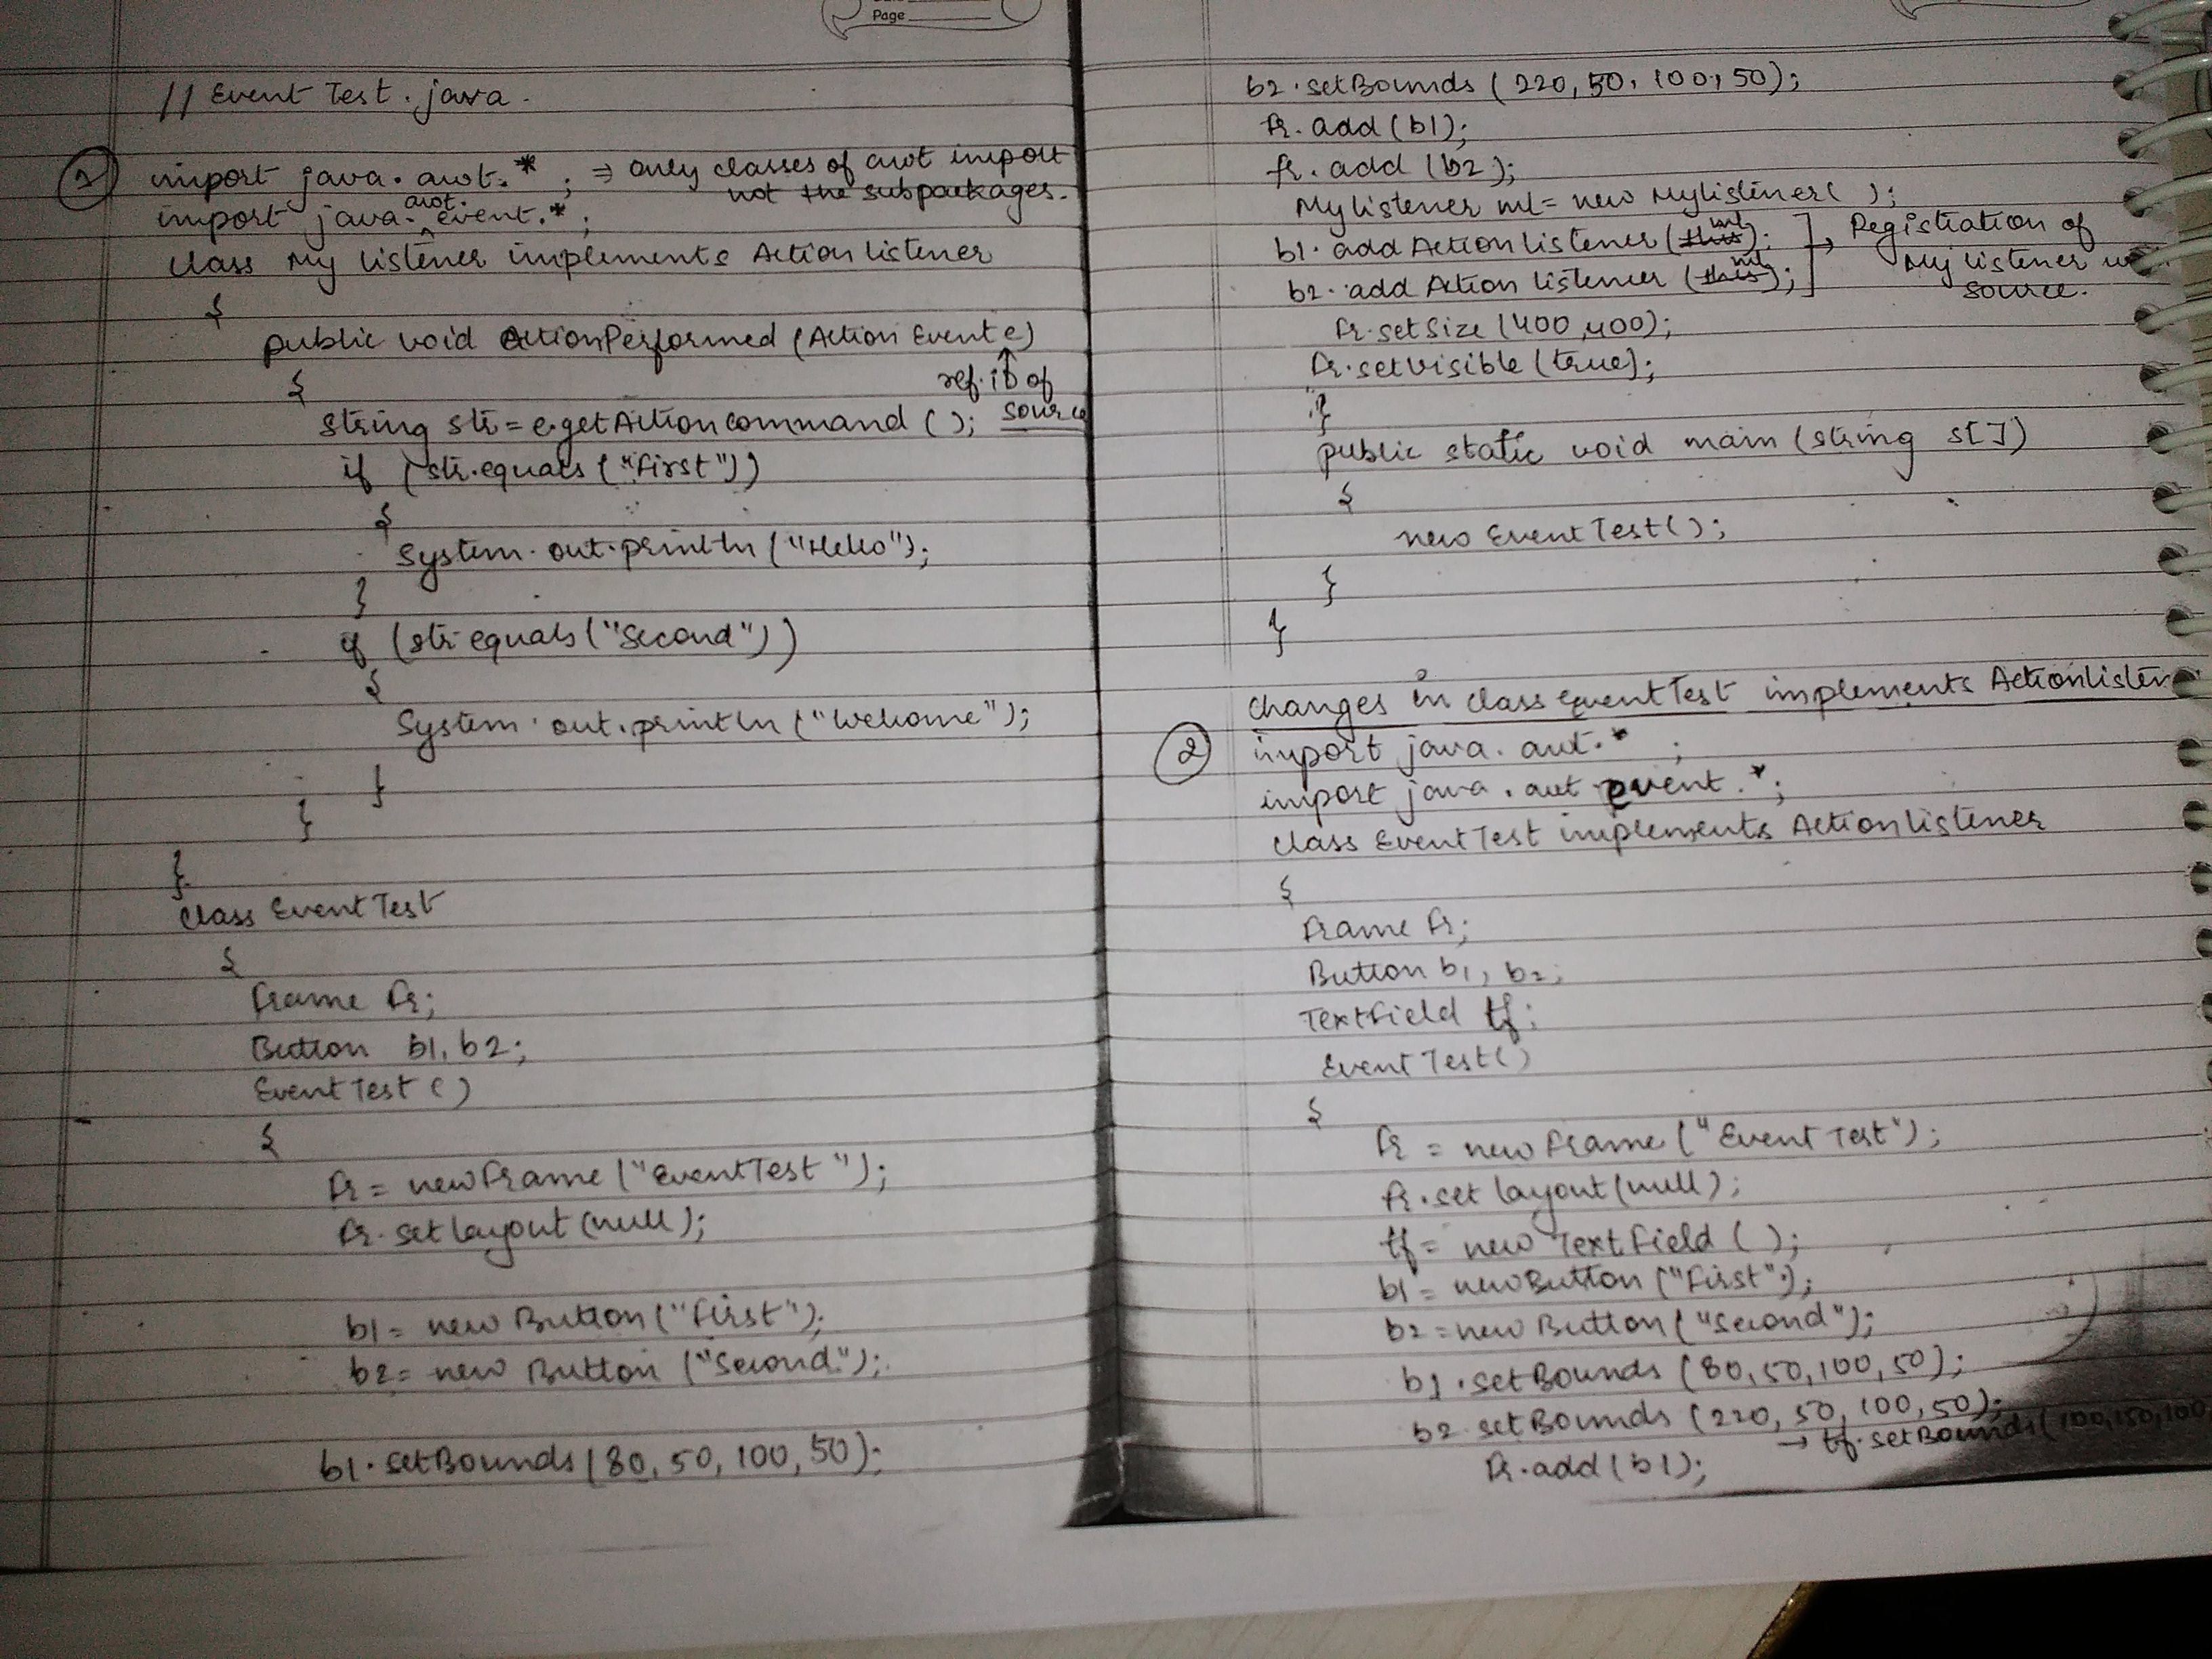 Page
// Event Test.java.
① import java.awt.*; ⇒ only classes of awt import
not the subpackages.
import java.awt.event.*;
class My listener implements Action listener
{
public void ActionPerformed (Action Event e)
{
ref. ID of
string str = e.getActioncommand (); source
if (str.equals ("first"))
{
System.out.println ("Hello");
}
if (str.equals ("Second"))
{
System.out.println ("Welcome");
}
}
}
class EventTest
{
frame fr;
Button b1, b2;
EventTest ()
{
fr = new frame ("EventTest");
fr.setlayout (null);
b1 = new Button ("first");
b2 = new Button ("Second");
b1.setBounds (80, 50, 100, 50);
b2.setBounds (220, 50, 100, 50);
fr.add (b1);
fr.add (b2);
Mylistener ml = new Mylistener( );
b1.addActionlistener (this ml); ] → Registration of
b2.addAction listener (this ml); My listener
source.
fr.setsize (400, 400);
fr.setvisible (true);
}
public static void main (string s[])
{
new EventTest ();
}
}
Changes in class eventTest implements Actionlisten
② import java.awt.*;
import java.awt.event.*;
class EventTest implements Actionlistener
{
frame fr;
Button b1, b2;
Textfield tf;
EventTest()
{
fr = new frame ("EventTest");
fr.set layout (null);
tf = new Textfield ( );
b1 = new Button ("first");
b2 = new Button ("Second");
b1.setBounds (80, 50, 100, 50);
b2.setBounds (220, 50, 100, 50);
→ tf.setBounds (100, 150, 100
fr.add (b1);